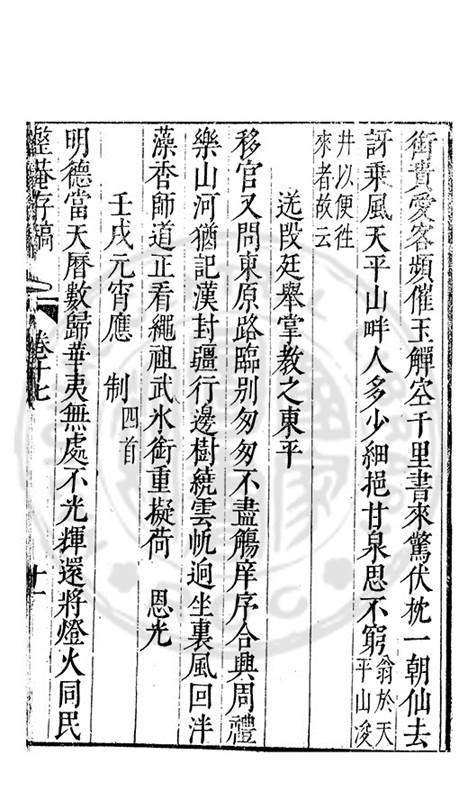 銜貴愛客頻催玉觶空千里書來驚伏枕一朝仙去
訝乘風天平山畔人多少細挹甘泉思不窮翁於天平山浚
井以便徃
來者故云
送段廷舉掌教之東平
移官又問東原路臨别匆匆不盡觴庠序合興周禮
樂山河猶記漢封疆行邊樹繞雲帆逈坐裏風回泮
藻香師道正看繩祖武氷銜重擬荷 恩光
壬戌元宵應 制四首
明德當天曆數歸華夷無處不光輝還將燈火同民
存稿 卷十七 十一